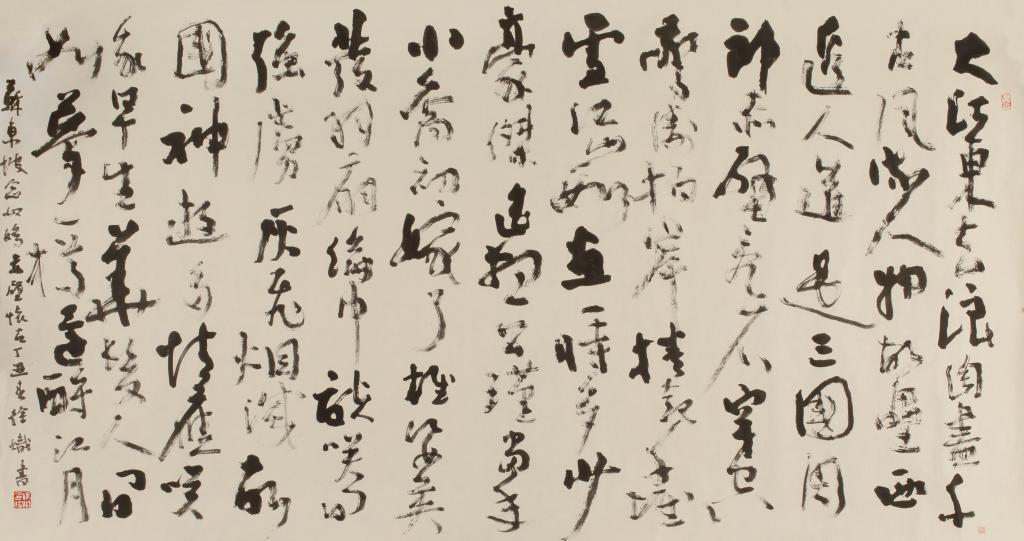 大江東去浪淘盡千
古風流人物故壘西
邊人道是三國周
郎赤壁亂石穿空
驚濤拍岸捲起千堆
雪江山如畫一時多少
豪傑遥想公瑾當年
小喬初嫁了雄姿英
發羽扇綸巾談笑間
强虜灰飛烟滅故
國神遊多情應笑
我早生華髮人間
如夢一樽還酹江月
蘇東坡念奴嬌赤壁懷古丁丑春徐書